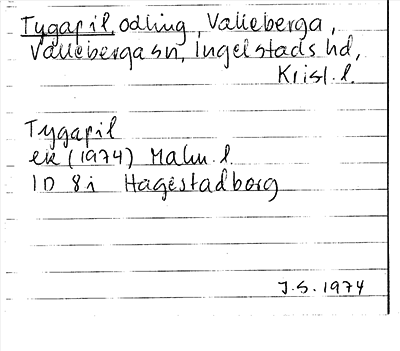 Tygapil, odling, Valleberga,
Valleberga sn, Ingelstads hd,
Krist. l.
Tygapil
ek (1974) Malm. l.
1D 8i Hagestadborg
J.S. 1974